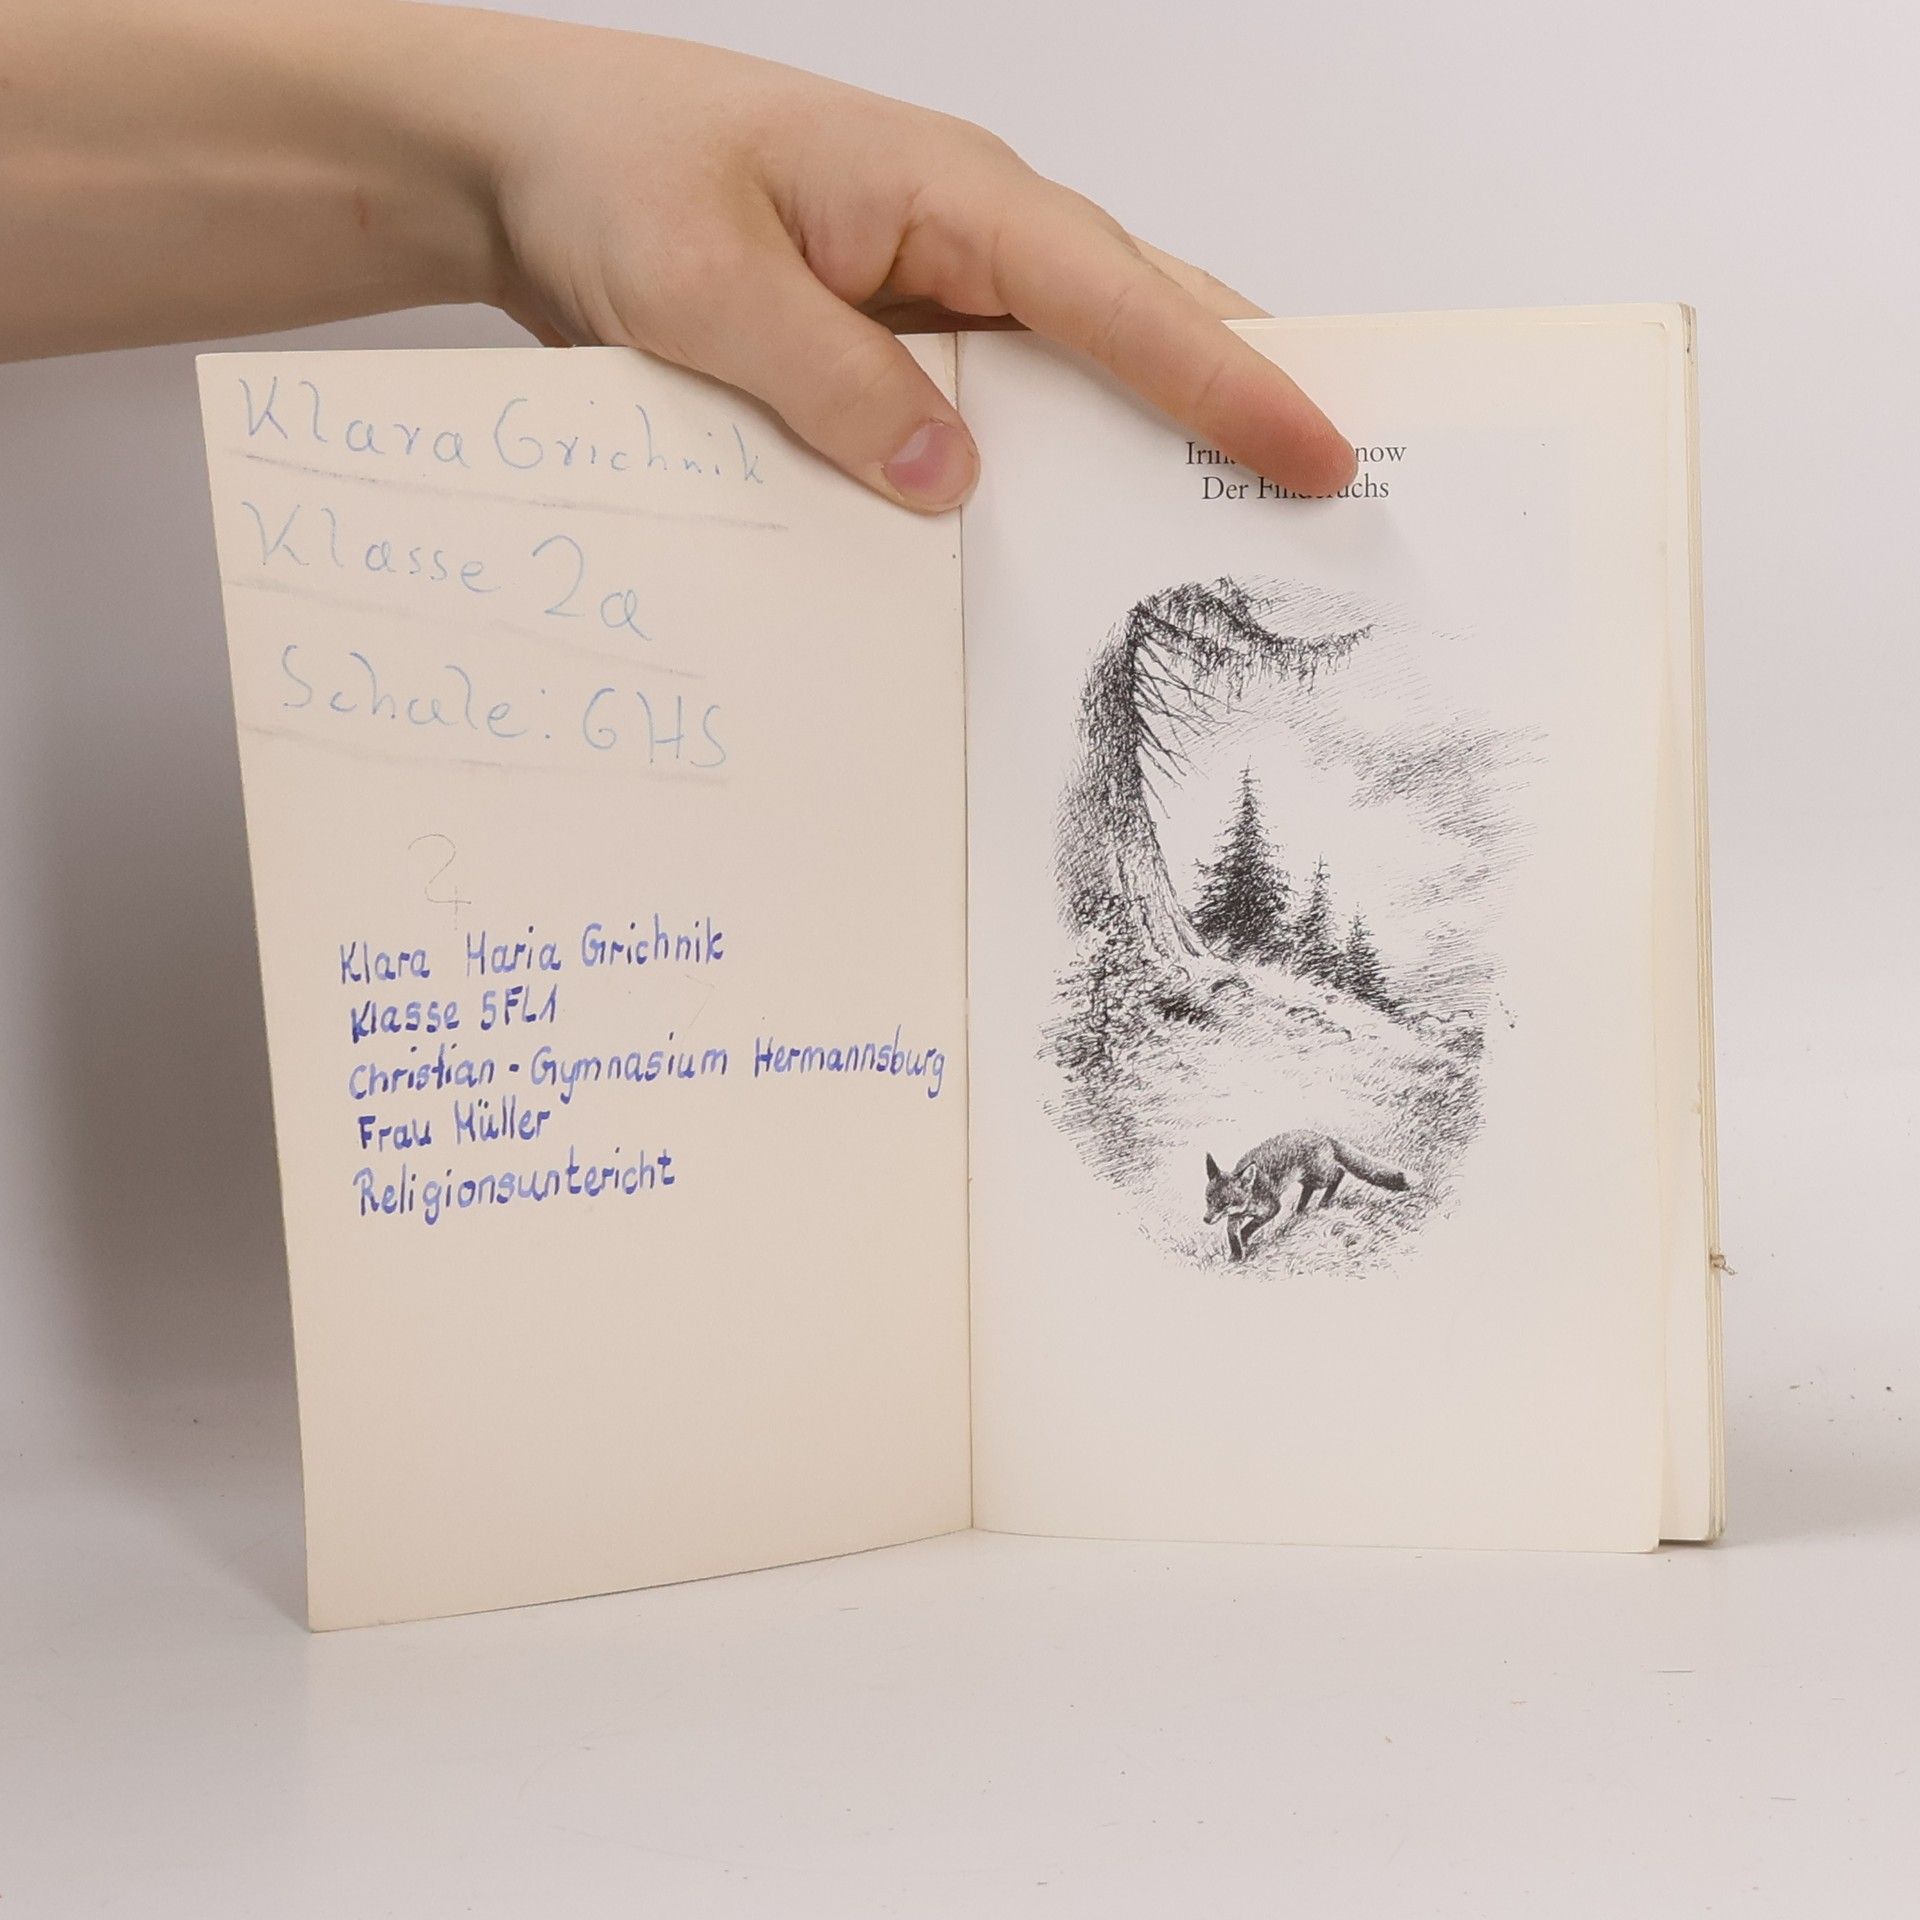 Klara Grichnik
Klasse 2a
Schule: GHS
24
Klara Maria Grichnik
Klasse 5FL1
Christian-Gymnasium Hermannsburg
Frau Müller
Religionsuntericht
Der